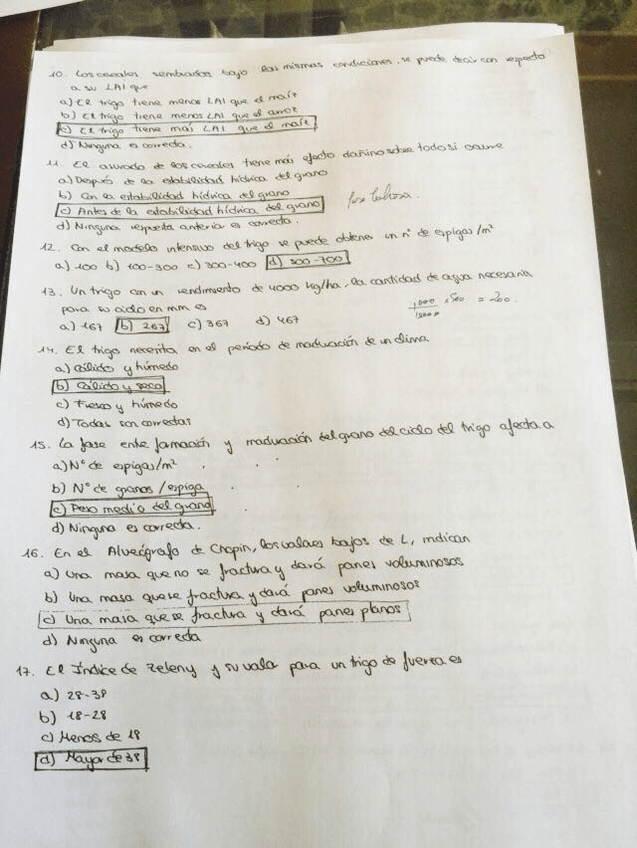 10. Los cereales sembrados bajo las mismas condiciones, se puede decir con respecto
a su LAI que
a) El trigo tiene menos LAI que el maíz
b) El trigo tiene menos LAI que el arroz
c) El trigo tiene más LAI que el maíz
d) Ninguna es correcta.
11. El asurado de los cereales tiene más efecto dañino sobre todo si ocurre
a) Después de la estabilidad hídrica del grano
b) Con la estabilidad hídrica del grano
c) Antes de la estabilidad hídrica del grano
d) Ninguna respuesta anterior es correcta.
12. Con el modelo intensivo del trigo se puede obtener un nº de espigas/m²
a) 100 b) 100-300 c) 300-400 d) 500-700
13. Un trigo con un rendimiento de 4000 kg/ha, la cantidad de agua necesaria
para su ciclo en mm es
a) 167 b) 267 c) 367 d) 467
14. El trigo necesita en el periodo de maduración de un clima
a) Cálido y húmedo
b) Cálido y seco
c) Fresco y húmedo
d) Todas son correctas
15. La fase entre formación y maduración del grano del ciclo del trigo afecta a
a) Nº de espigas/m²
b) Nº de granos/espiga
c) Peso medio del grano
d) Ninguna es correcta.
16. En el Alveógrafo de Chopin, los valores bajos de L, indican
a) Una masa que no se fractura y dará panes voluminosos
b) Una masa que se fractura y dará panes voluminosos
c) Una masa que se fractura y dará panes planos
d) Ninguna es correcta
17. El Índice de Zeleny y su valor para un trigo de fuerza es
a) 28-38
b) 18-28
c) Menos de 18
d) Mayor de 38